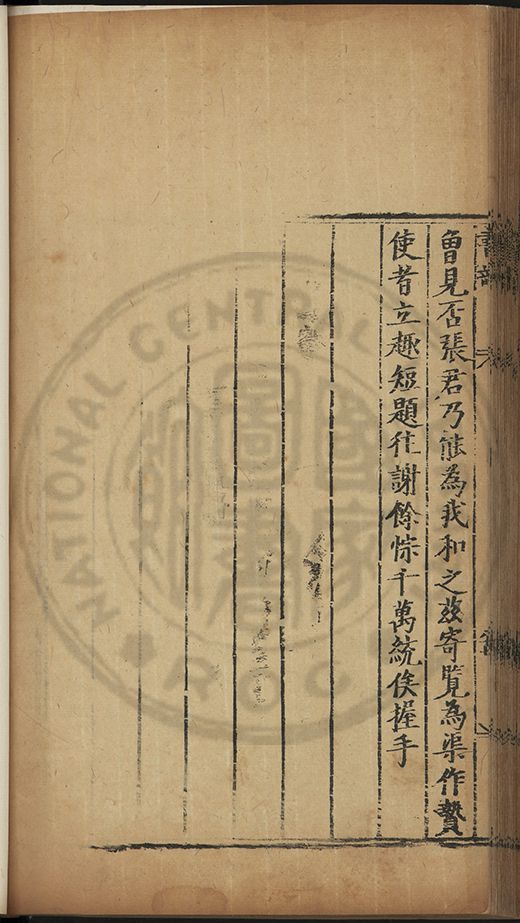 曾見否張君乃能為我和之茲寄覧為渠作贄
使者立趣短題往謝餘悰千萬統俟握手
NATIONAL CENTRAL